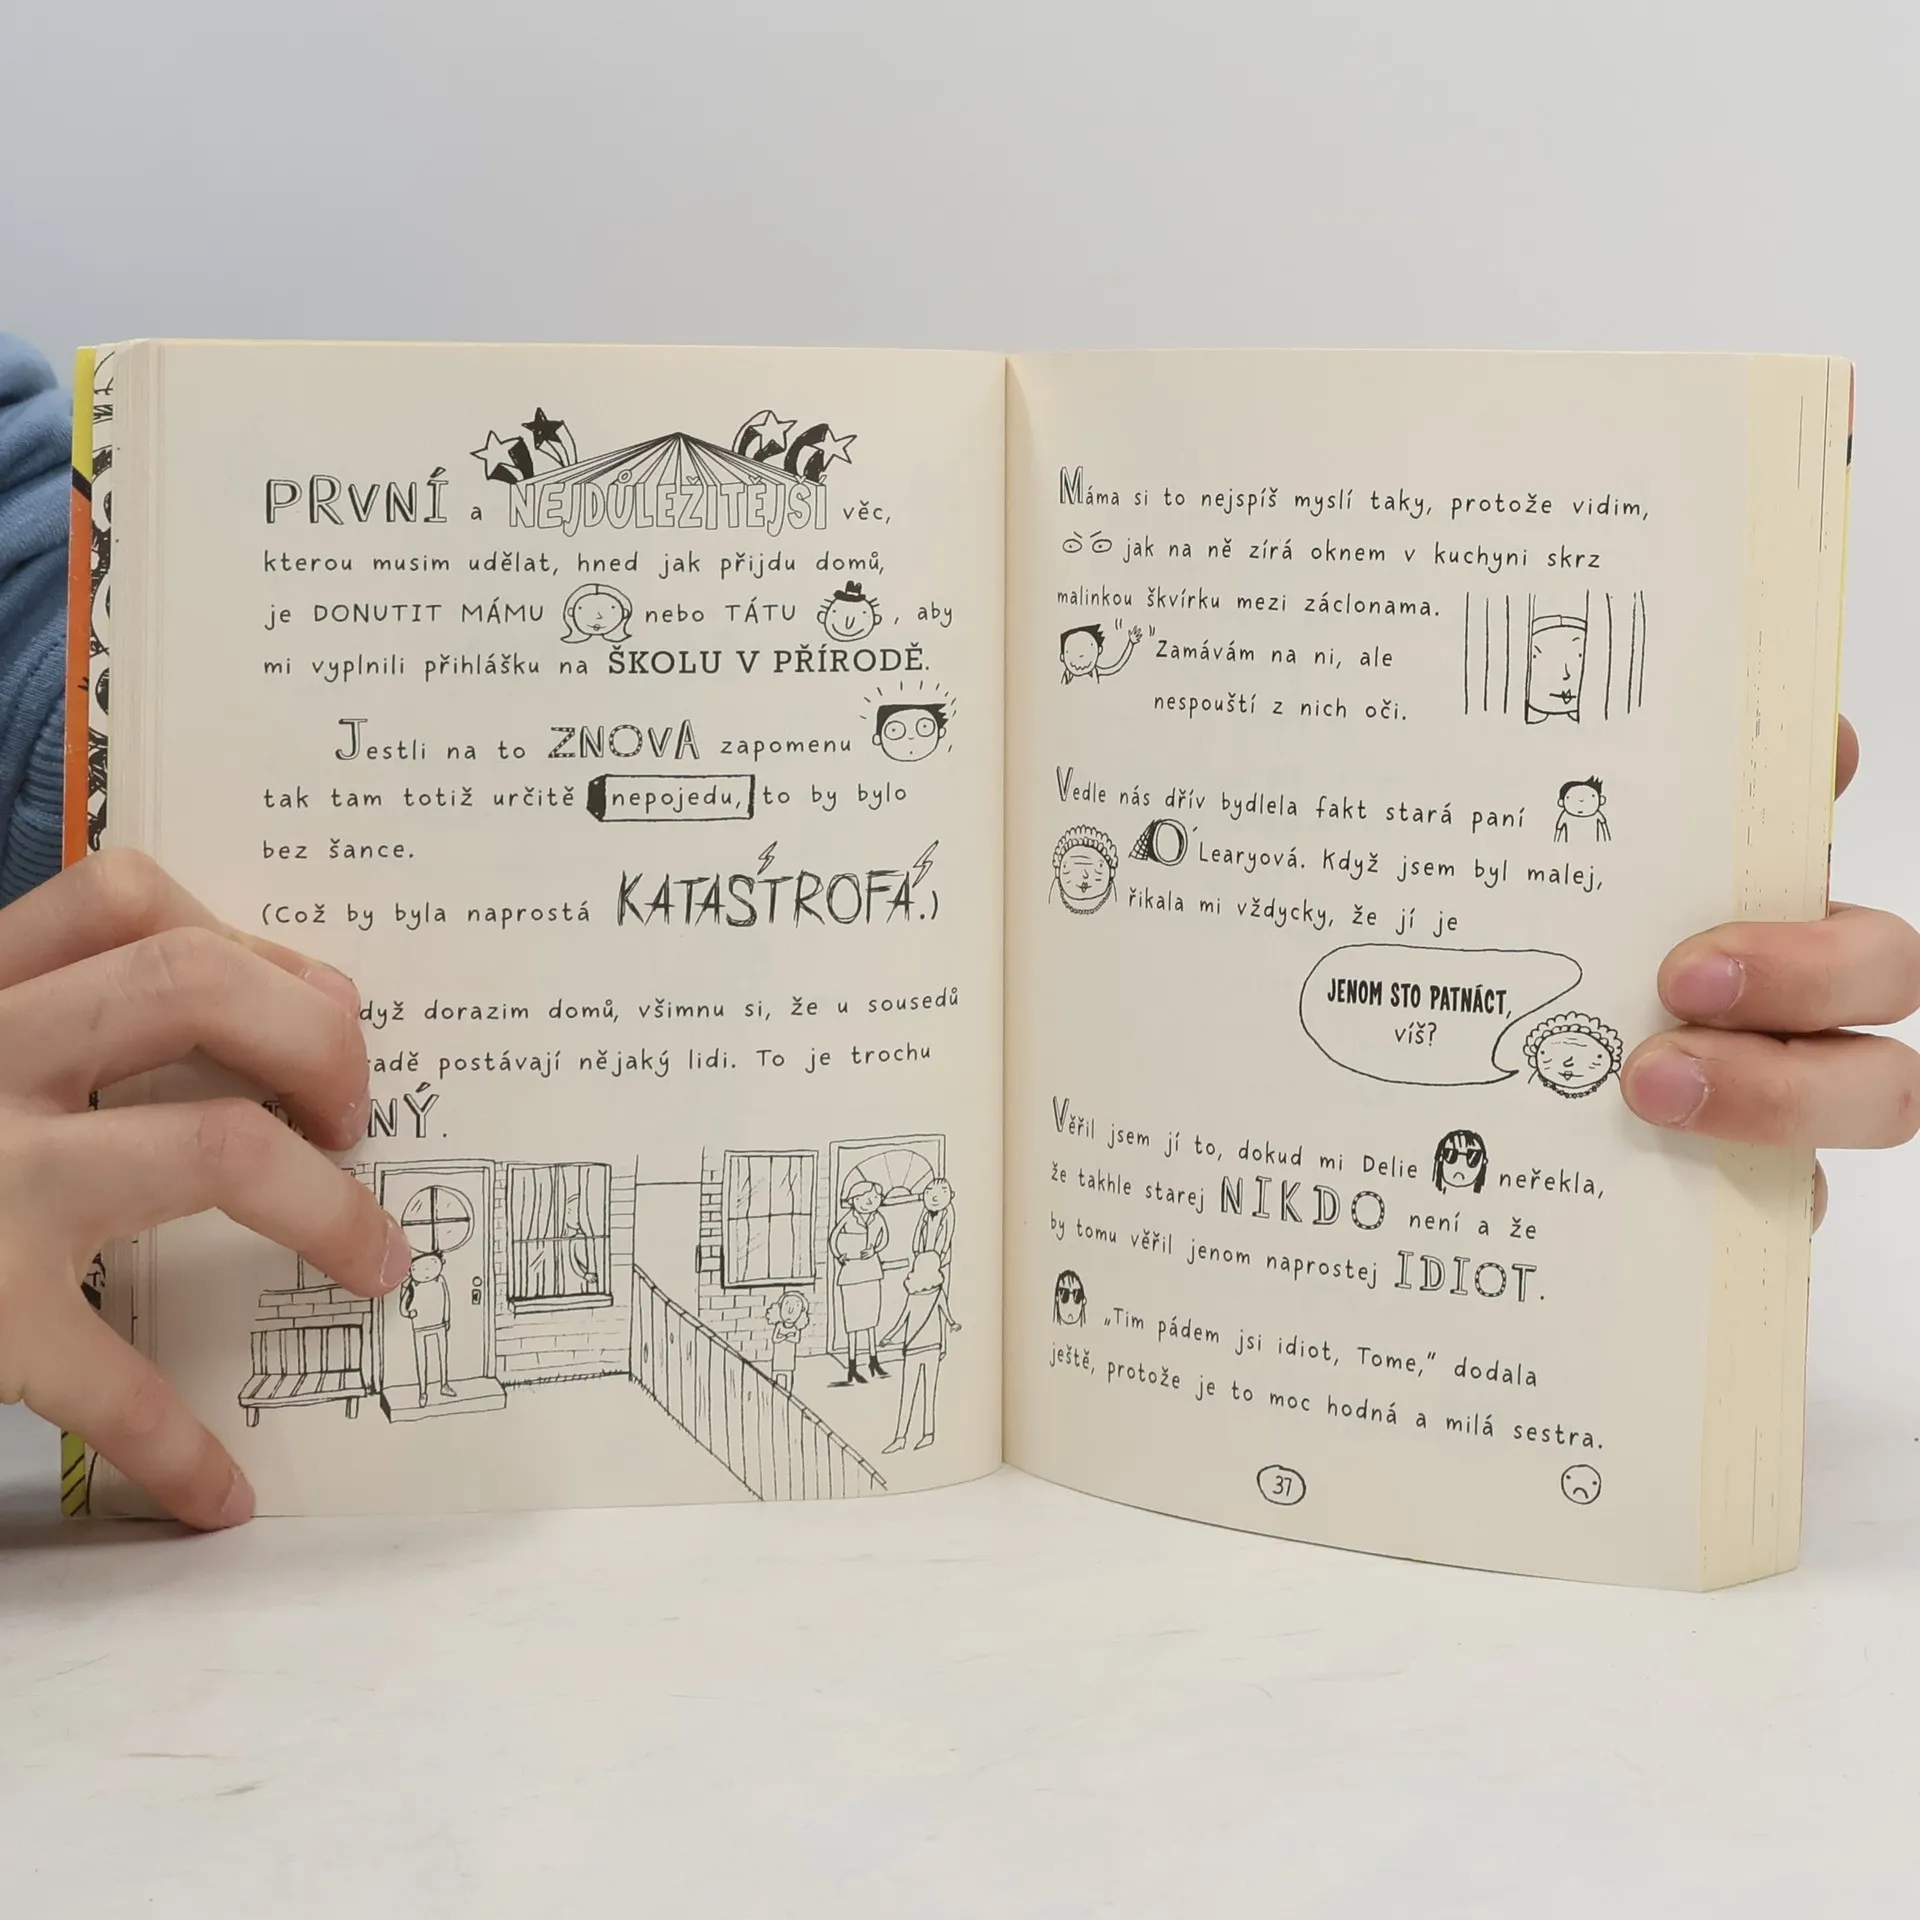 PRVNÍ a NEJDŮLEŽITĚJŠÍ věc,
kterou musim udělat, hned jak přijdu domů,
je DONUTIT MÁMU nebo TÁTU, aby
mi vyplnili přihlášku na ŠKOLU V PŘÍRODĚ.
Jestli na to ZNOVA zapomenu
tak tam totiž určitě nepojedu, to by bylo
bez šance.
(Což by byla naprostá KATASTROFA.)
dyž dorazim domů, všimnu si, že u sousedů
adě postávají nějaký lidi. To je trochu
NÝ.
Máma si to nejspíš myslí taky, protože vidim,
jak na ně zírá oknem v kuchyni skrz
malinkou škvírku mezi záclonama.
Zamávám na ni, ale
nespouští z nich oči.
Vedle nás dřív bydlela fakt stará paní
O'Learyová. Když jsem byl malej,
řikala mi vždycky, že jí je
JENOM STO PATNÁCT,
víš?
Věřil jsem jí to, dokud mi Delie neřekla,
že takhle starej NIKDO není a že
by tomu věřil jenom naprostej IDIOT.
„Tim pádem jsi idiot, Tome,“ dodala
ještě, protože je to moc hodná a milá sestra.
37